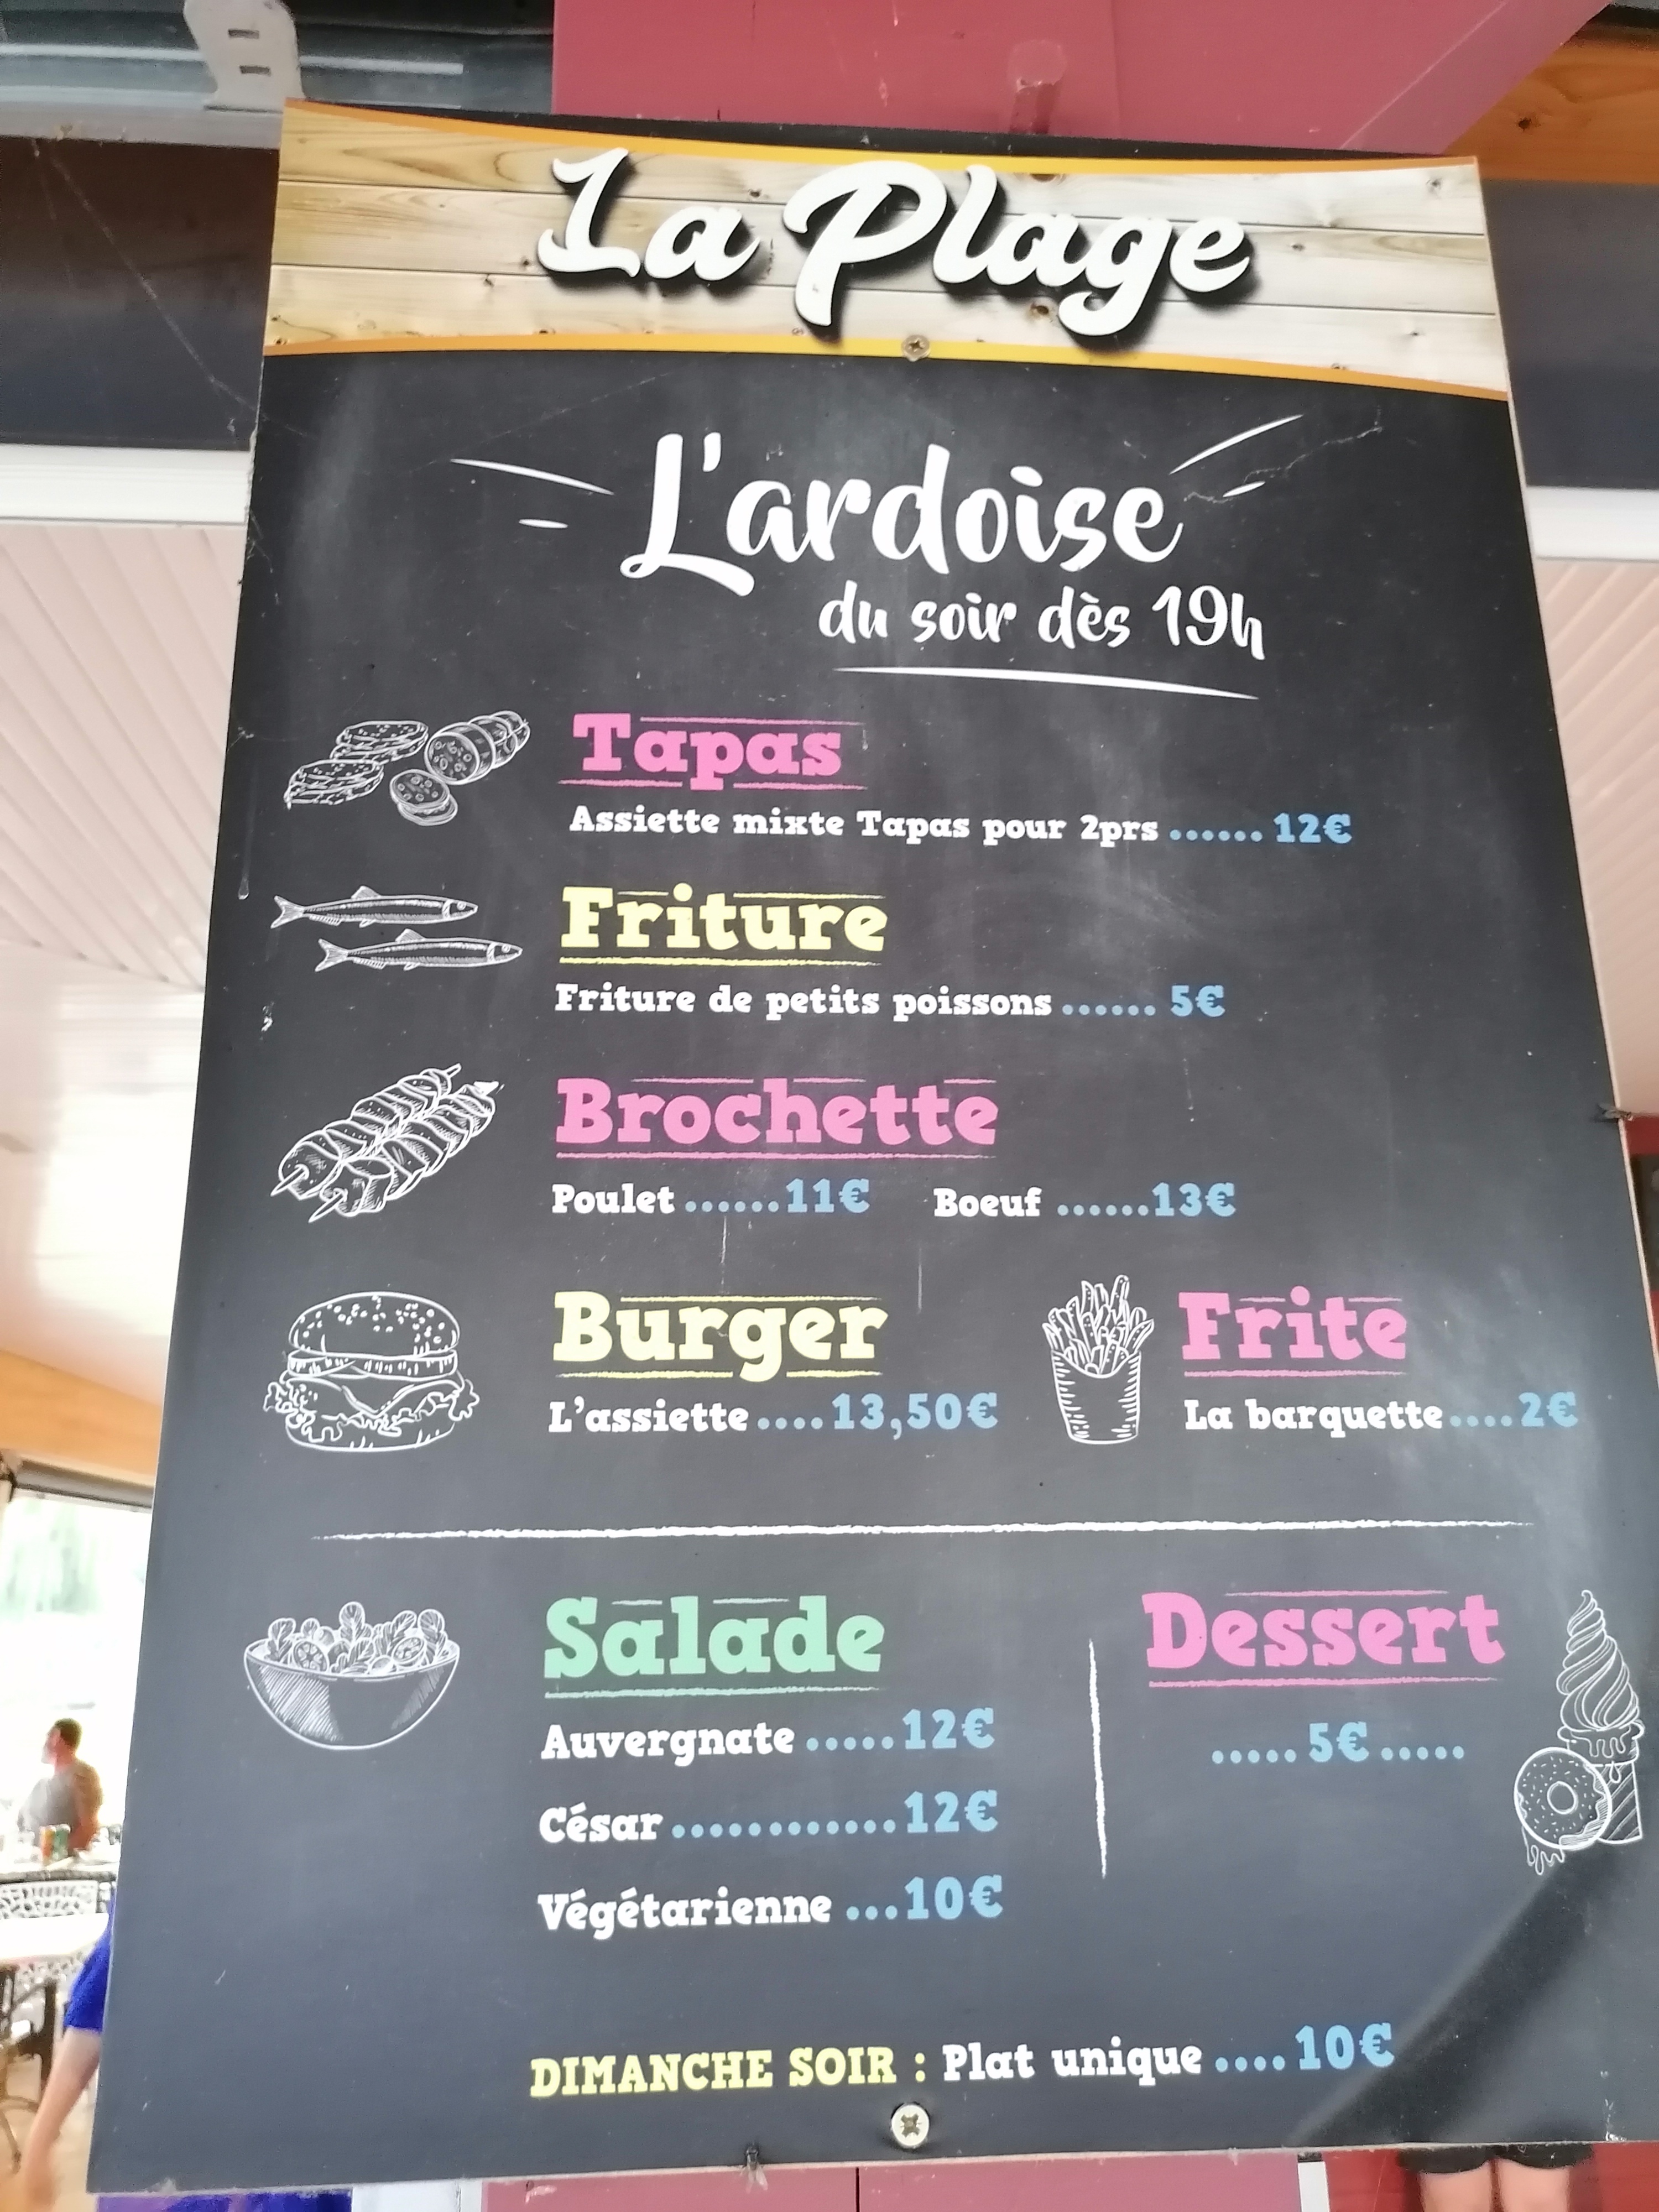 La Plage
L'ardoise
du soir dès 19h
Tapas
Assiette mixte Tapas pour 2prs ...... 12€
Friture
Friture de petits poissons ...... 5€
Brochette
Poulet ......11€ Boeuf ......13€
Burger
L'assiette ....13,50€
Frite
La barquette....2€
Salade
Auvergnate .....12€
César ............12€
Végétarienne ...10€
Dessert
..... 5€ .....
DIMANCHE SOIR : Plat unique ....10€